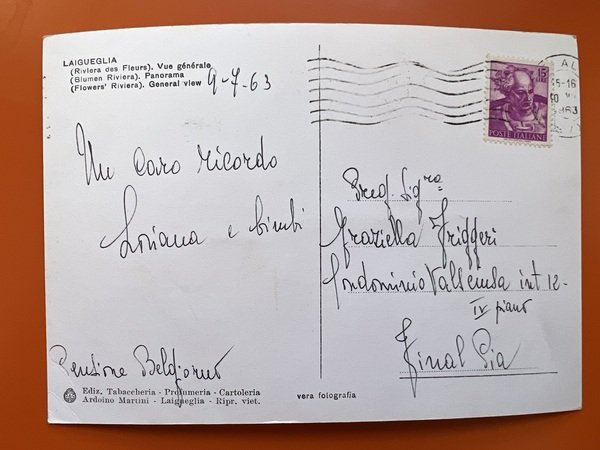 LAIGUEGLIA
(Riviera des Fleurs). Vue générale
(Blumen Riviera). Panorama
(Flowers' Riviera). General view
9-7-63
Un caro ricordo
Loriana e bimbi
Pensione Belgiorno
Ediz. Tabaccheria - Profumeria - Cartoleria
Ardoino Martini - Laigueglia - Ripr. viet.
vera fotografia
15
POSTE ITALIANE
AL
-16
1963
Preg. Sig.ra
Graziella Friggeri
Condominio int 12-
IV piano
Final Pia